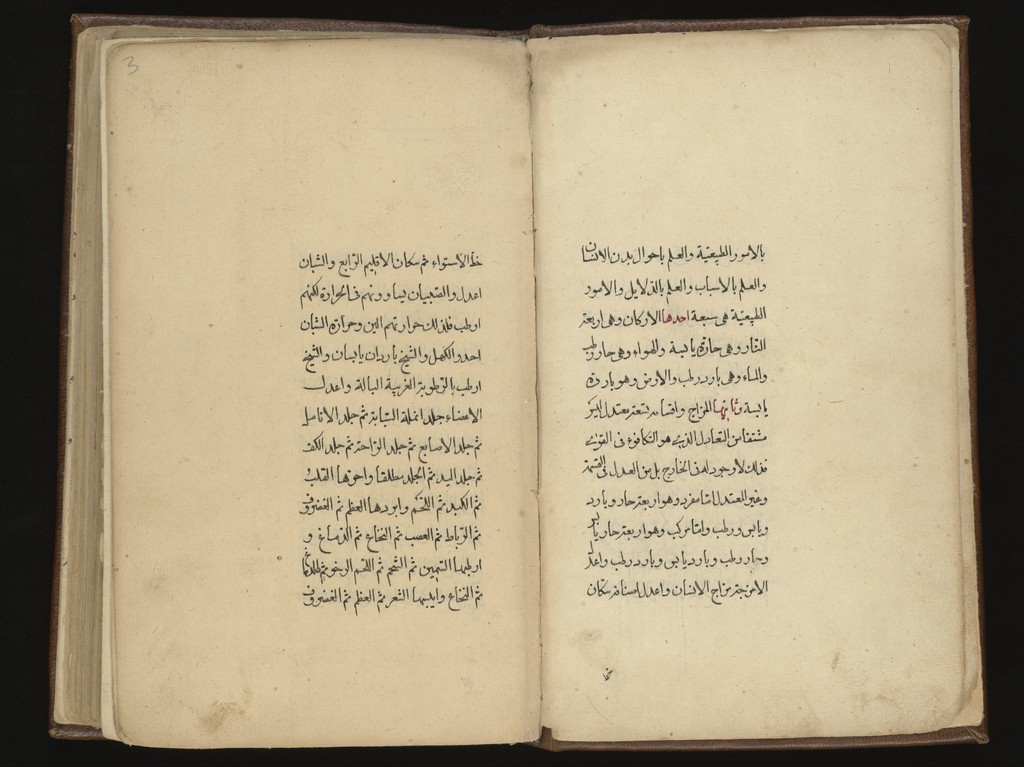 بالامور الطبيعية والعلم باحوال بدن الانسان
والعلم بالاسباب والعلم بالدلايل والامور
الطبيعية هى سبعة احدها الاركان وهى اربعة
النار وهى حارة يابسة والهواء وهى حار رطب
والماء وهى بارد رطب والارض وهو باردة
يابسة وثانيها المزاج واقسامه تسعة معتدل ليس
مشتقا من التعادل الذى هو التكافوء فى القوى
فذلك لا وجود له فى الخارج بل من العدل فى القسمة
وغير المعتدل اما مفرد وهو اربعة حار وبارد
ويابس ورطب واما مركب وهو اربعة حار يابس
وحار رطب وبارد يابس وبارد رطب واعدل
الامزجة مزاج الانسان واعدل اصنافه سكان
خط
3
خط الاستواء ثم سكان الاقليم الرابع والشبان
اعدل والصبيان يساوونهم فى الحرارة لكنهم
ارطب فلذلك حرارتهم الين وحرارة الشبان
احد والكهل والشيخ باردان يابسان والشيخ
ارطب بالرطوبة الغريبة البالة واعدل
الاعضاء جلد انملة السبابة ثم جلد الانامل
ثم جلد الاصابع ثم جلد الراحة ثم جلد الكف
ثم جلد اليد ثم الجلد مطلقا واحرها القلب
ثم الكبد ثم اللحم وابردها العظم ثم الغضروف
ثم الرباط ثم العصب ثم النخاع ثم الدماغ و
ارطبها السمين ثم الشحم ثم اللحم الرخو ثم الدماغ
ثم النخاع وايبسها الشعر ثم العظم ثم الغضروف